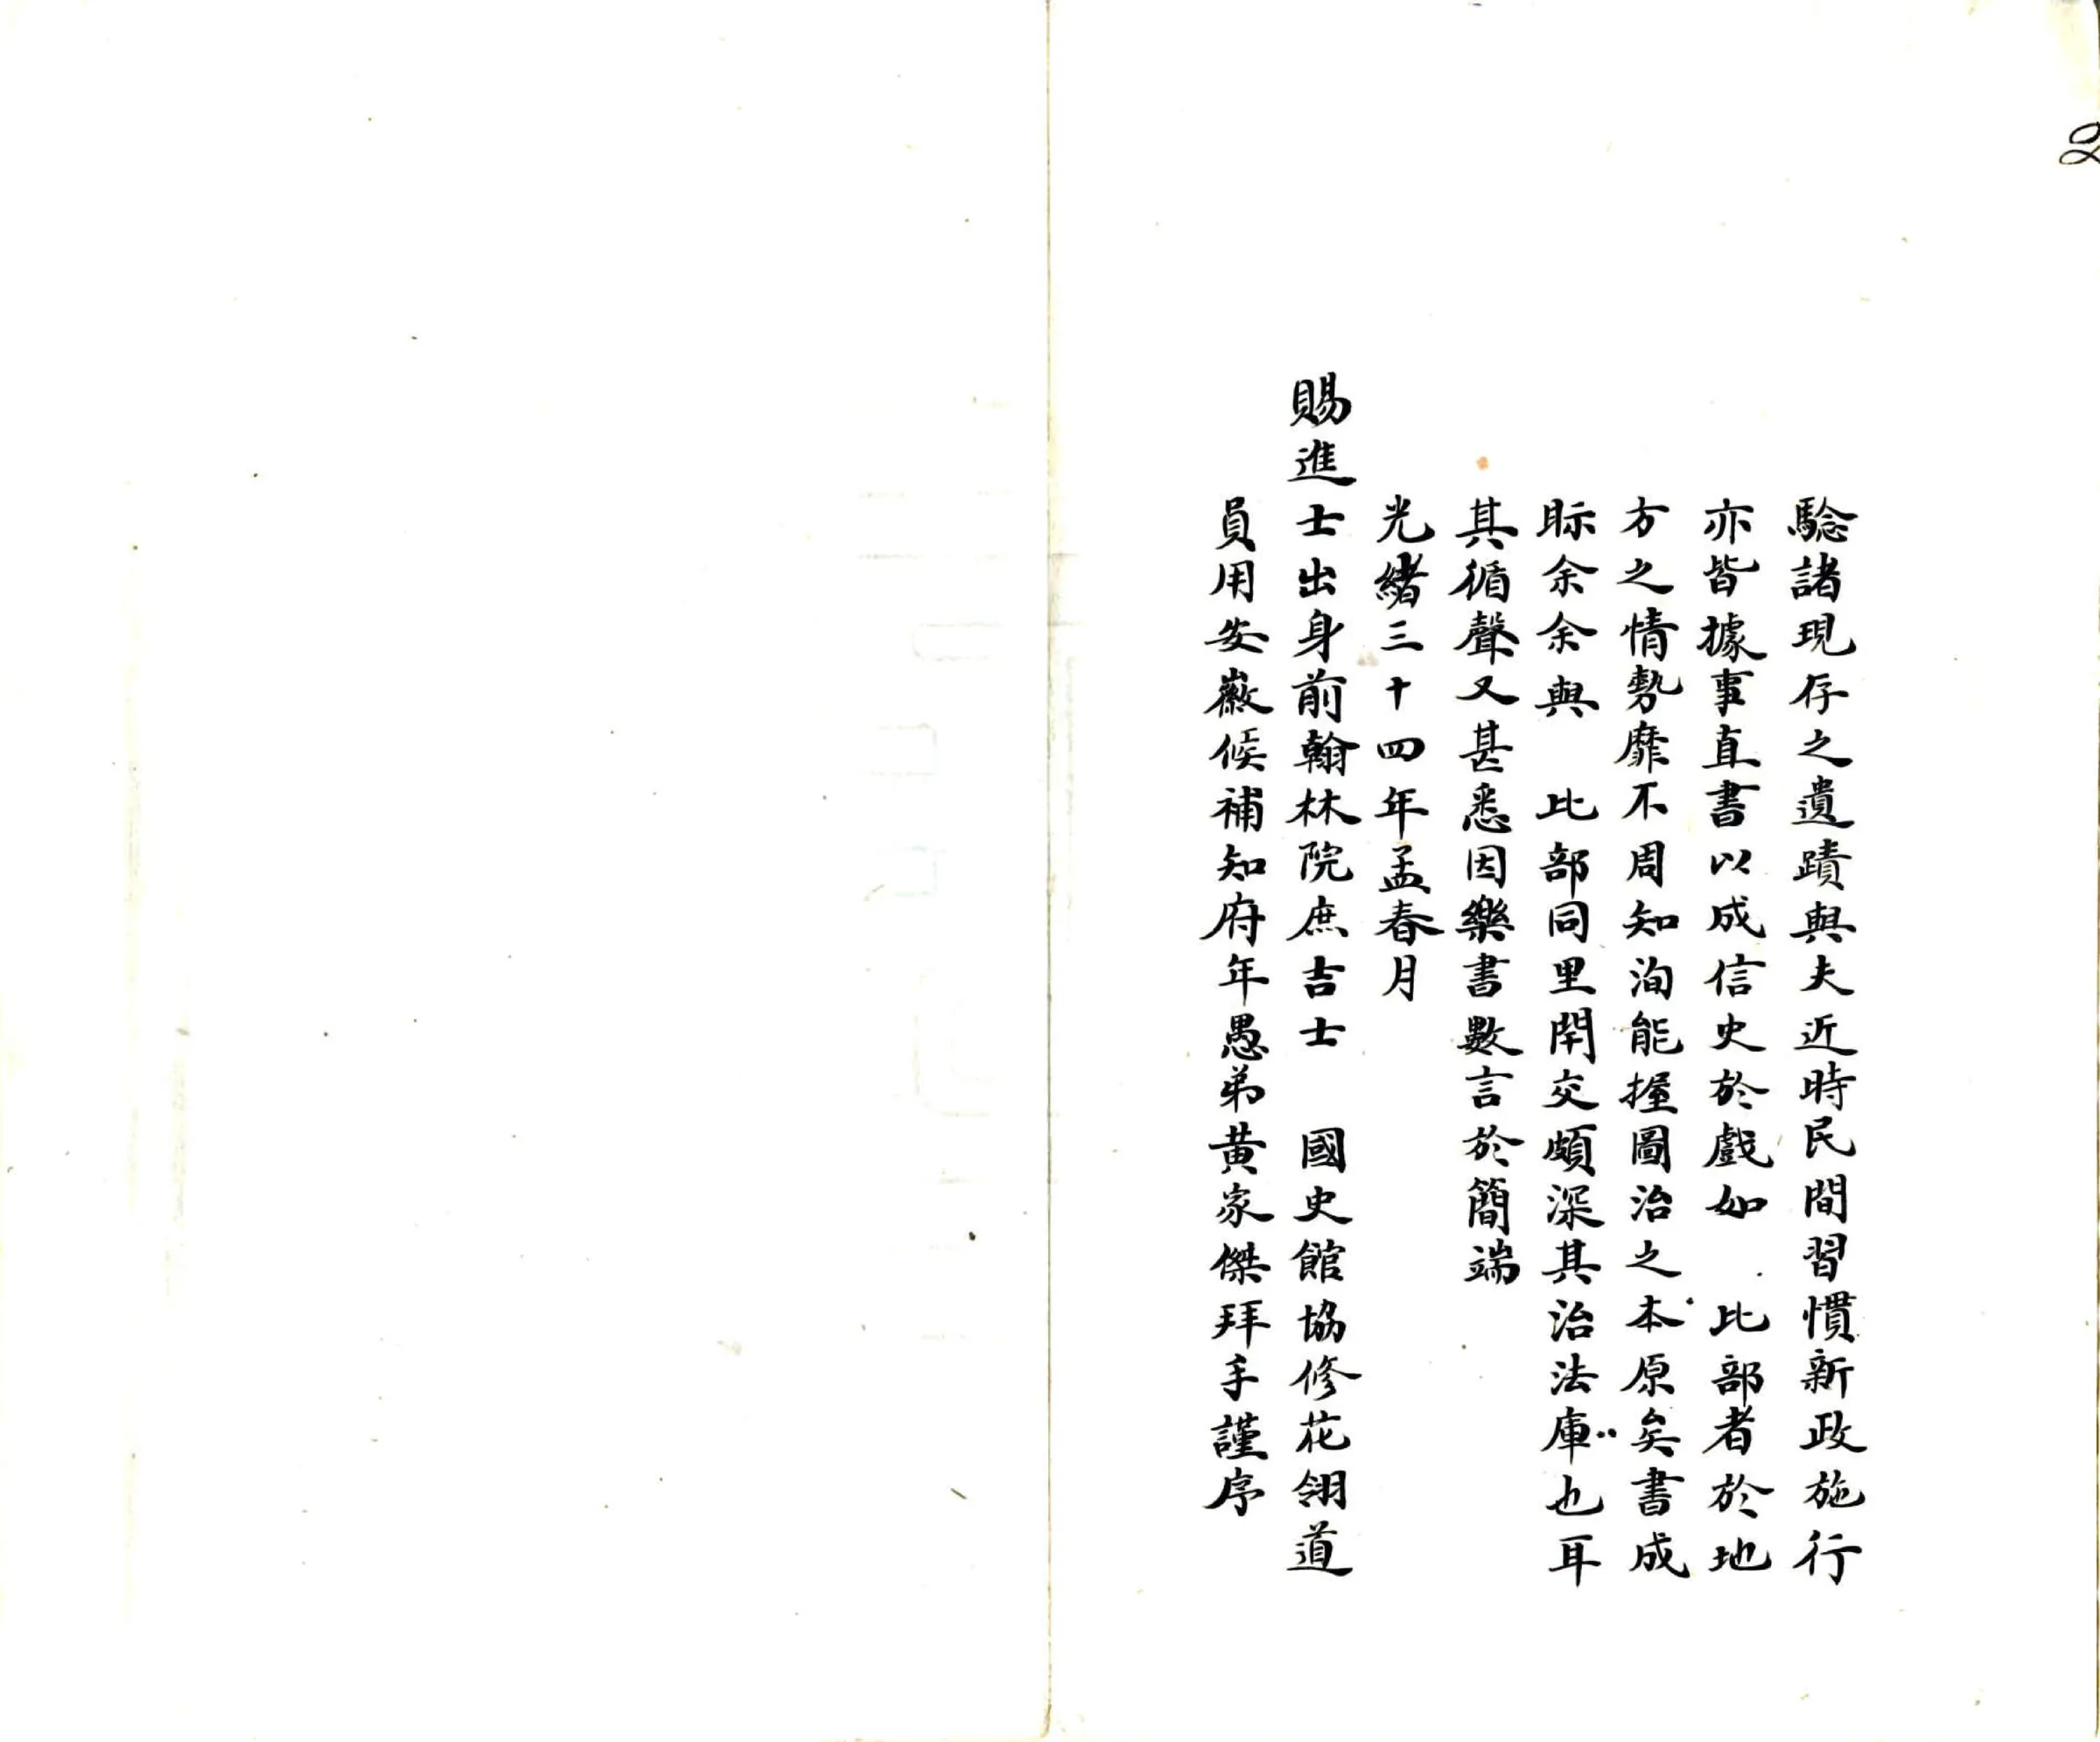 騐諸現存之遺蹟與夫近時民間習慣新政施行
亦皆據事直書以成信史於戲如　比部者於地
方之情勢靡不周知洵能握圖治之本原矣書成
眎余余與　比部同里閈交頗深其治法庫也耳
其循聲又甚悉因樂書數言於簡端
光緒三十四年孟春月
賜進士出身前翰林院庶吉士　國史館協修花翎道
員用安徽候補知府年愚弟黃家傑拜手謹序